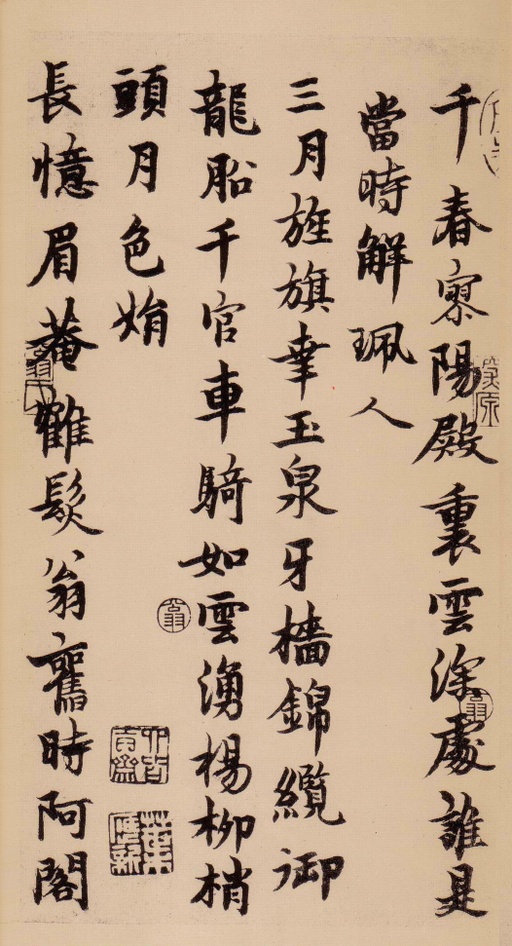 千春寥陽殿裏雲深處誰是
當時解珮人
三月旌旗幸玉泉牙檣錦纜御
龍舩千官車騎如雲湧楊柳梢
頭月色娟
長憶眉菴鶴髮翁舊時阿閣